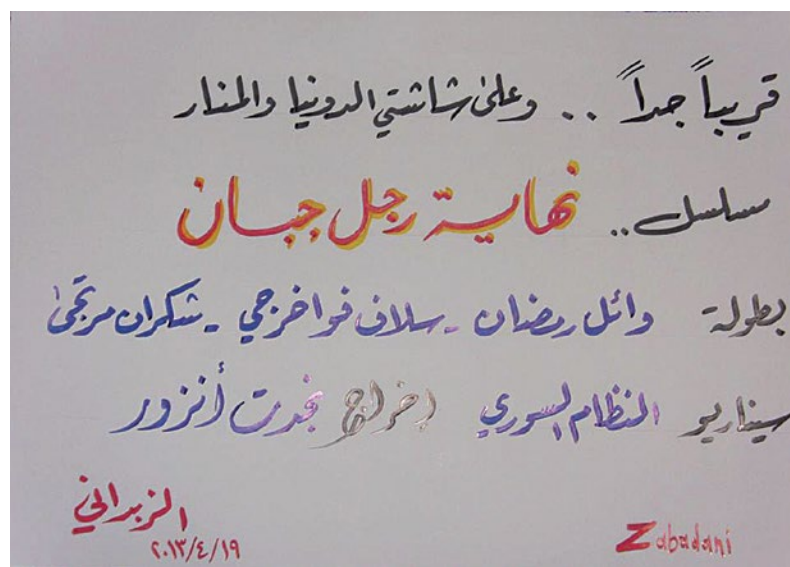 قريباً جداً .. وعلى شاشتي الدونيا والمنار
مسلسل .. نهاية رجل جبان
بطولة وائل رمضان - سلاف فواخرجي - شكران مرتجى
سيناريو النظام السوري إخراج نجدت أنزور
الزبداني
٢٠١٣/٤/١٩
Zabadani